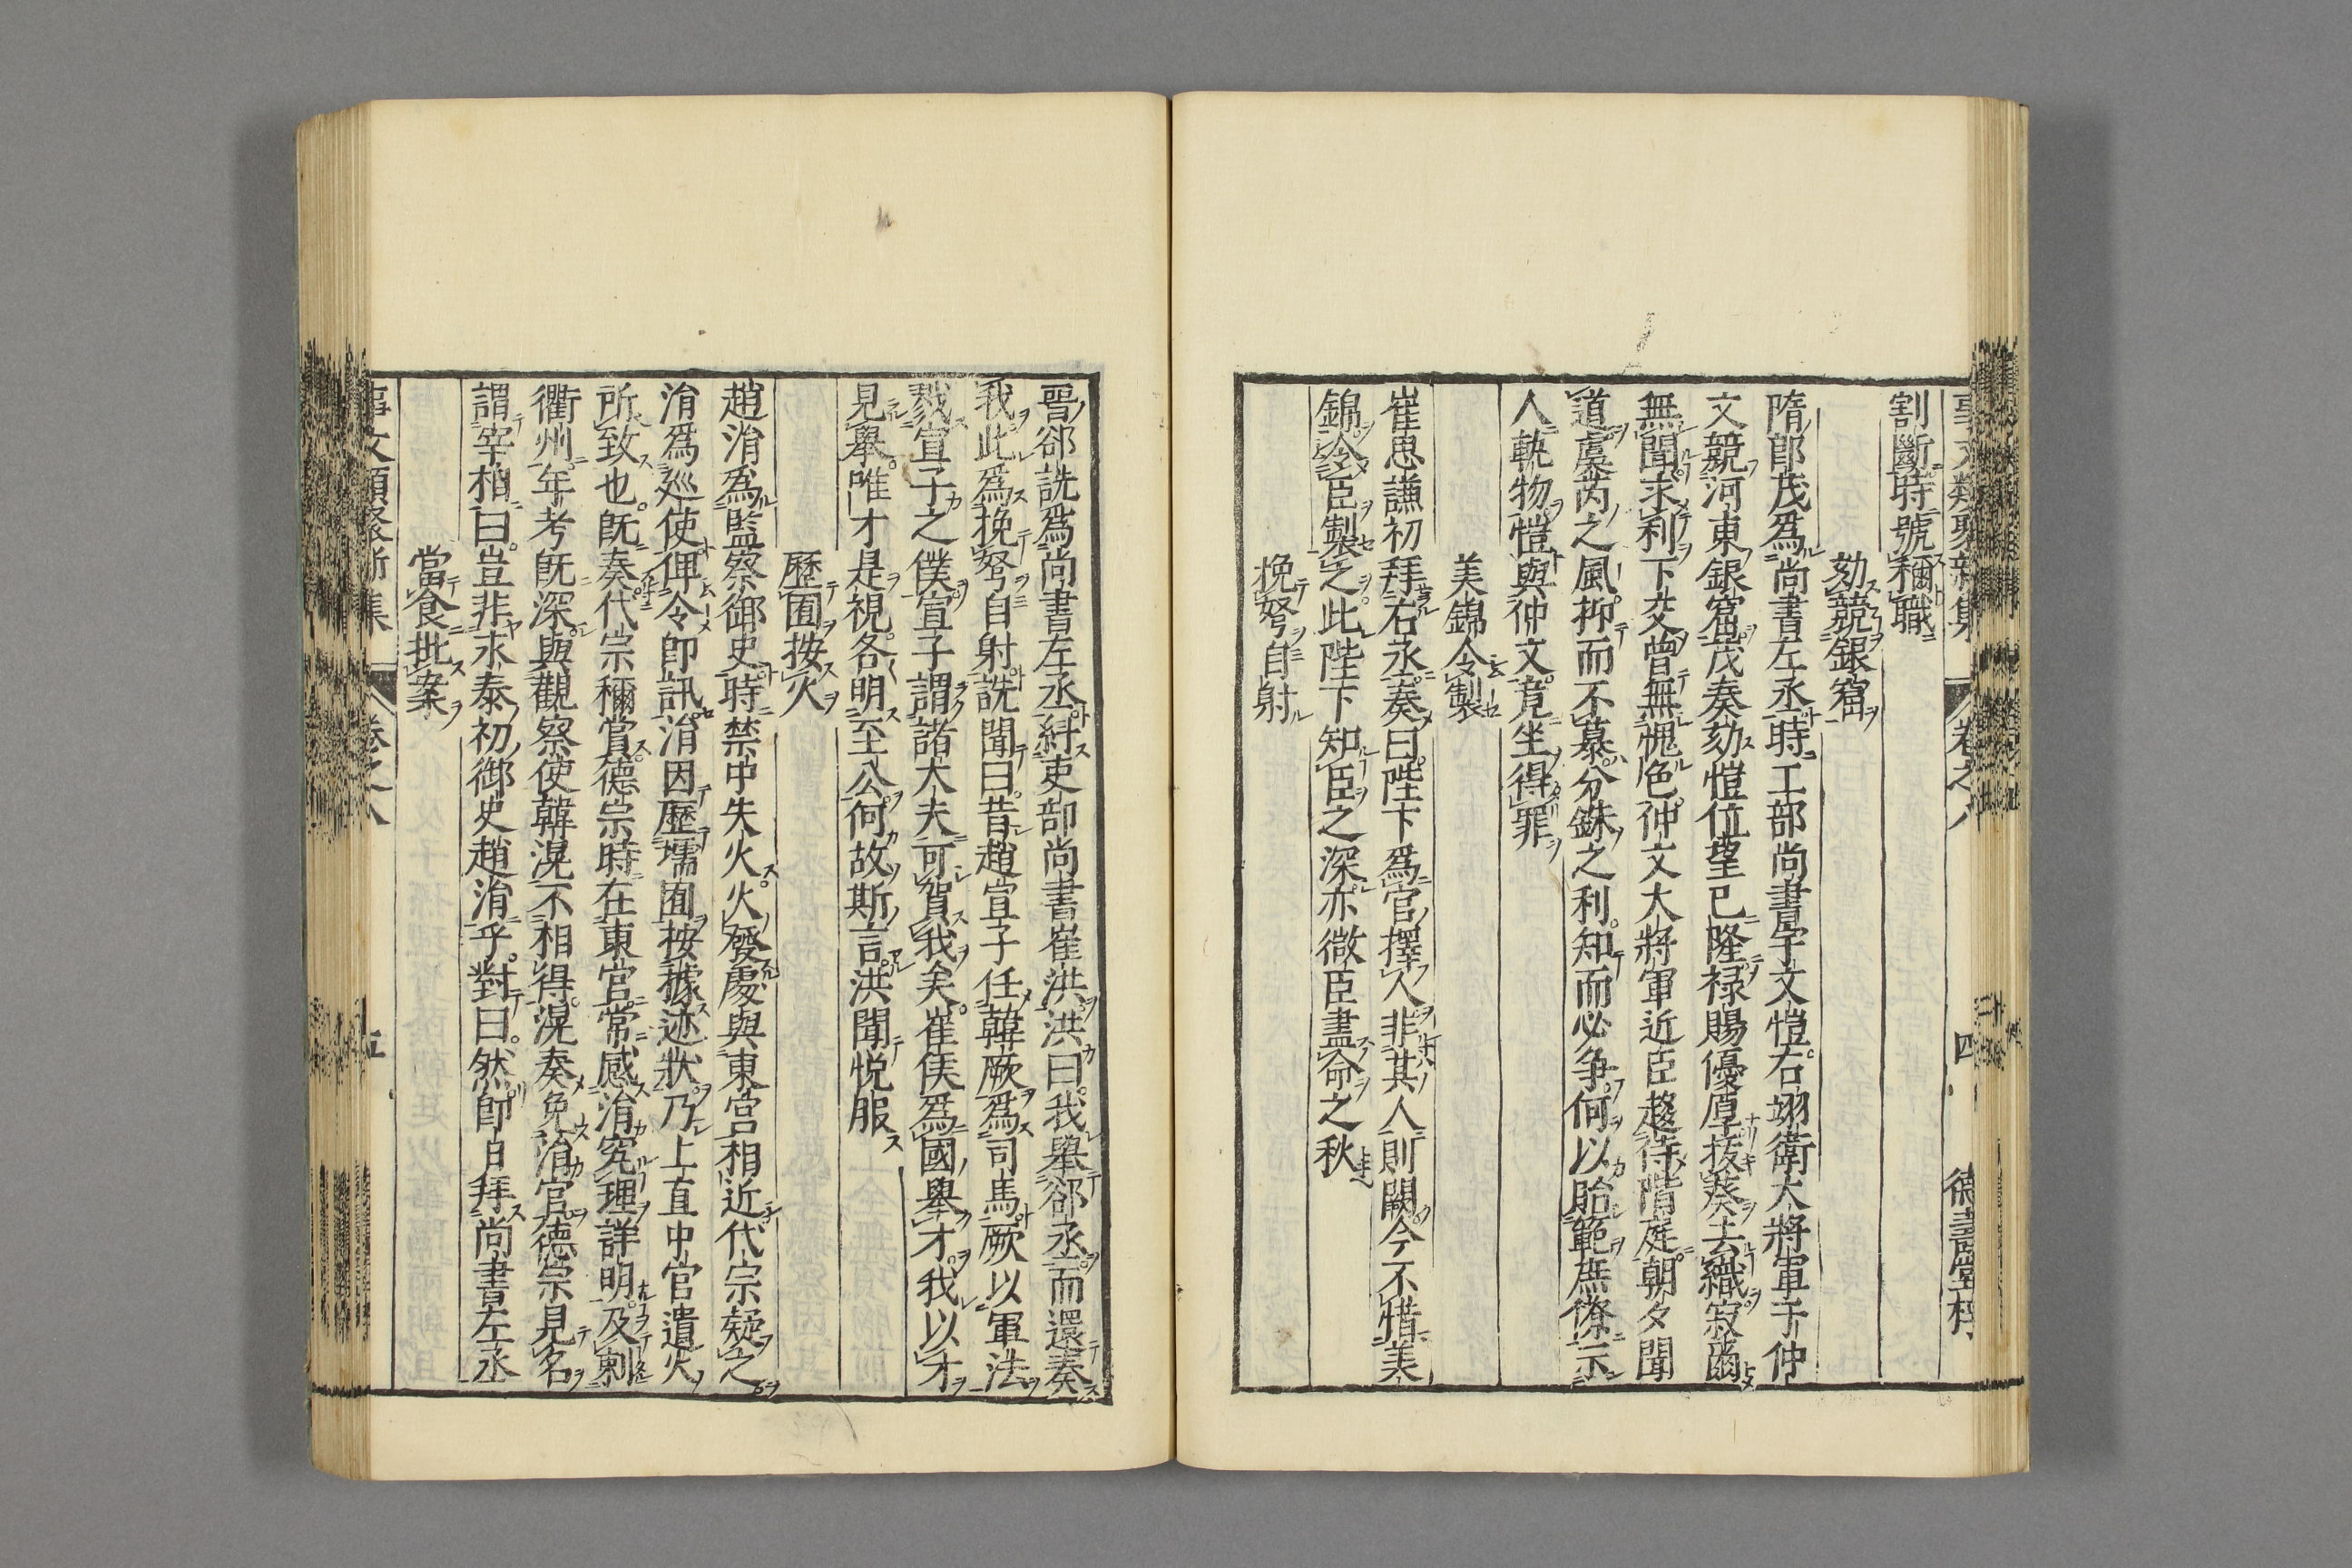 割斷時號稱職
劾競銀窟
隋郎茂爲尚書左丞時工部尚書宇文愷右翊衛大將軍于仲
文競河東銀窟茂奏劾愷位望已隆禄賜優厚拔葵去織寂爾
無聞求利下交曾無愧色仲文大將軍近臣趍待階庭朝夕聞
道虞芮之風抑而不慕分銖之利知而必爭何以貽範庶僚示
人軌物愷與仲文竟坐得罪
美錦令製
崔思謙初拜右丞奏曰陛下爲官擇人非其人則闕今不惜美
錦令臣製之此陛下知臣之深亦微臣盡命之秋
挽弩自射
晉郤詵爲尚書左丞糾吏部尚書崔洪洪曰我舉郤丞而還奏
我此爲挽弩自射詵聞曰昔趙宣子任韓厥爲司馬厥以軍法
戮宣子之僕宣子謂諸大夫可賀我矣崔侯爲國舉才我以才
見舉唯才是視各明至公何故斯言洪聞悦服
歷囿按火
趙涓爲監察御史時禁中失火火發處與東宮相近代宗疑之
涓爲巡使俾令即訊涓因歷壖囿按據迹狀乃上直中官遺火
所致也既奏代宗稱賞德宗時在東宮常感涓究理詳明及刺
衢州年考既深與觀察使韓滉不相得滉奏免涓官德宗見名
謂宰相曰豈非永泰初御史趙涓乎對曰然即日拜尚書左丞
當食批案
卷之八